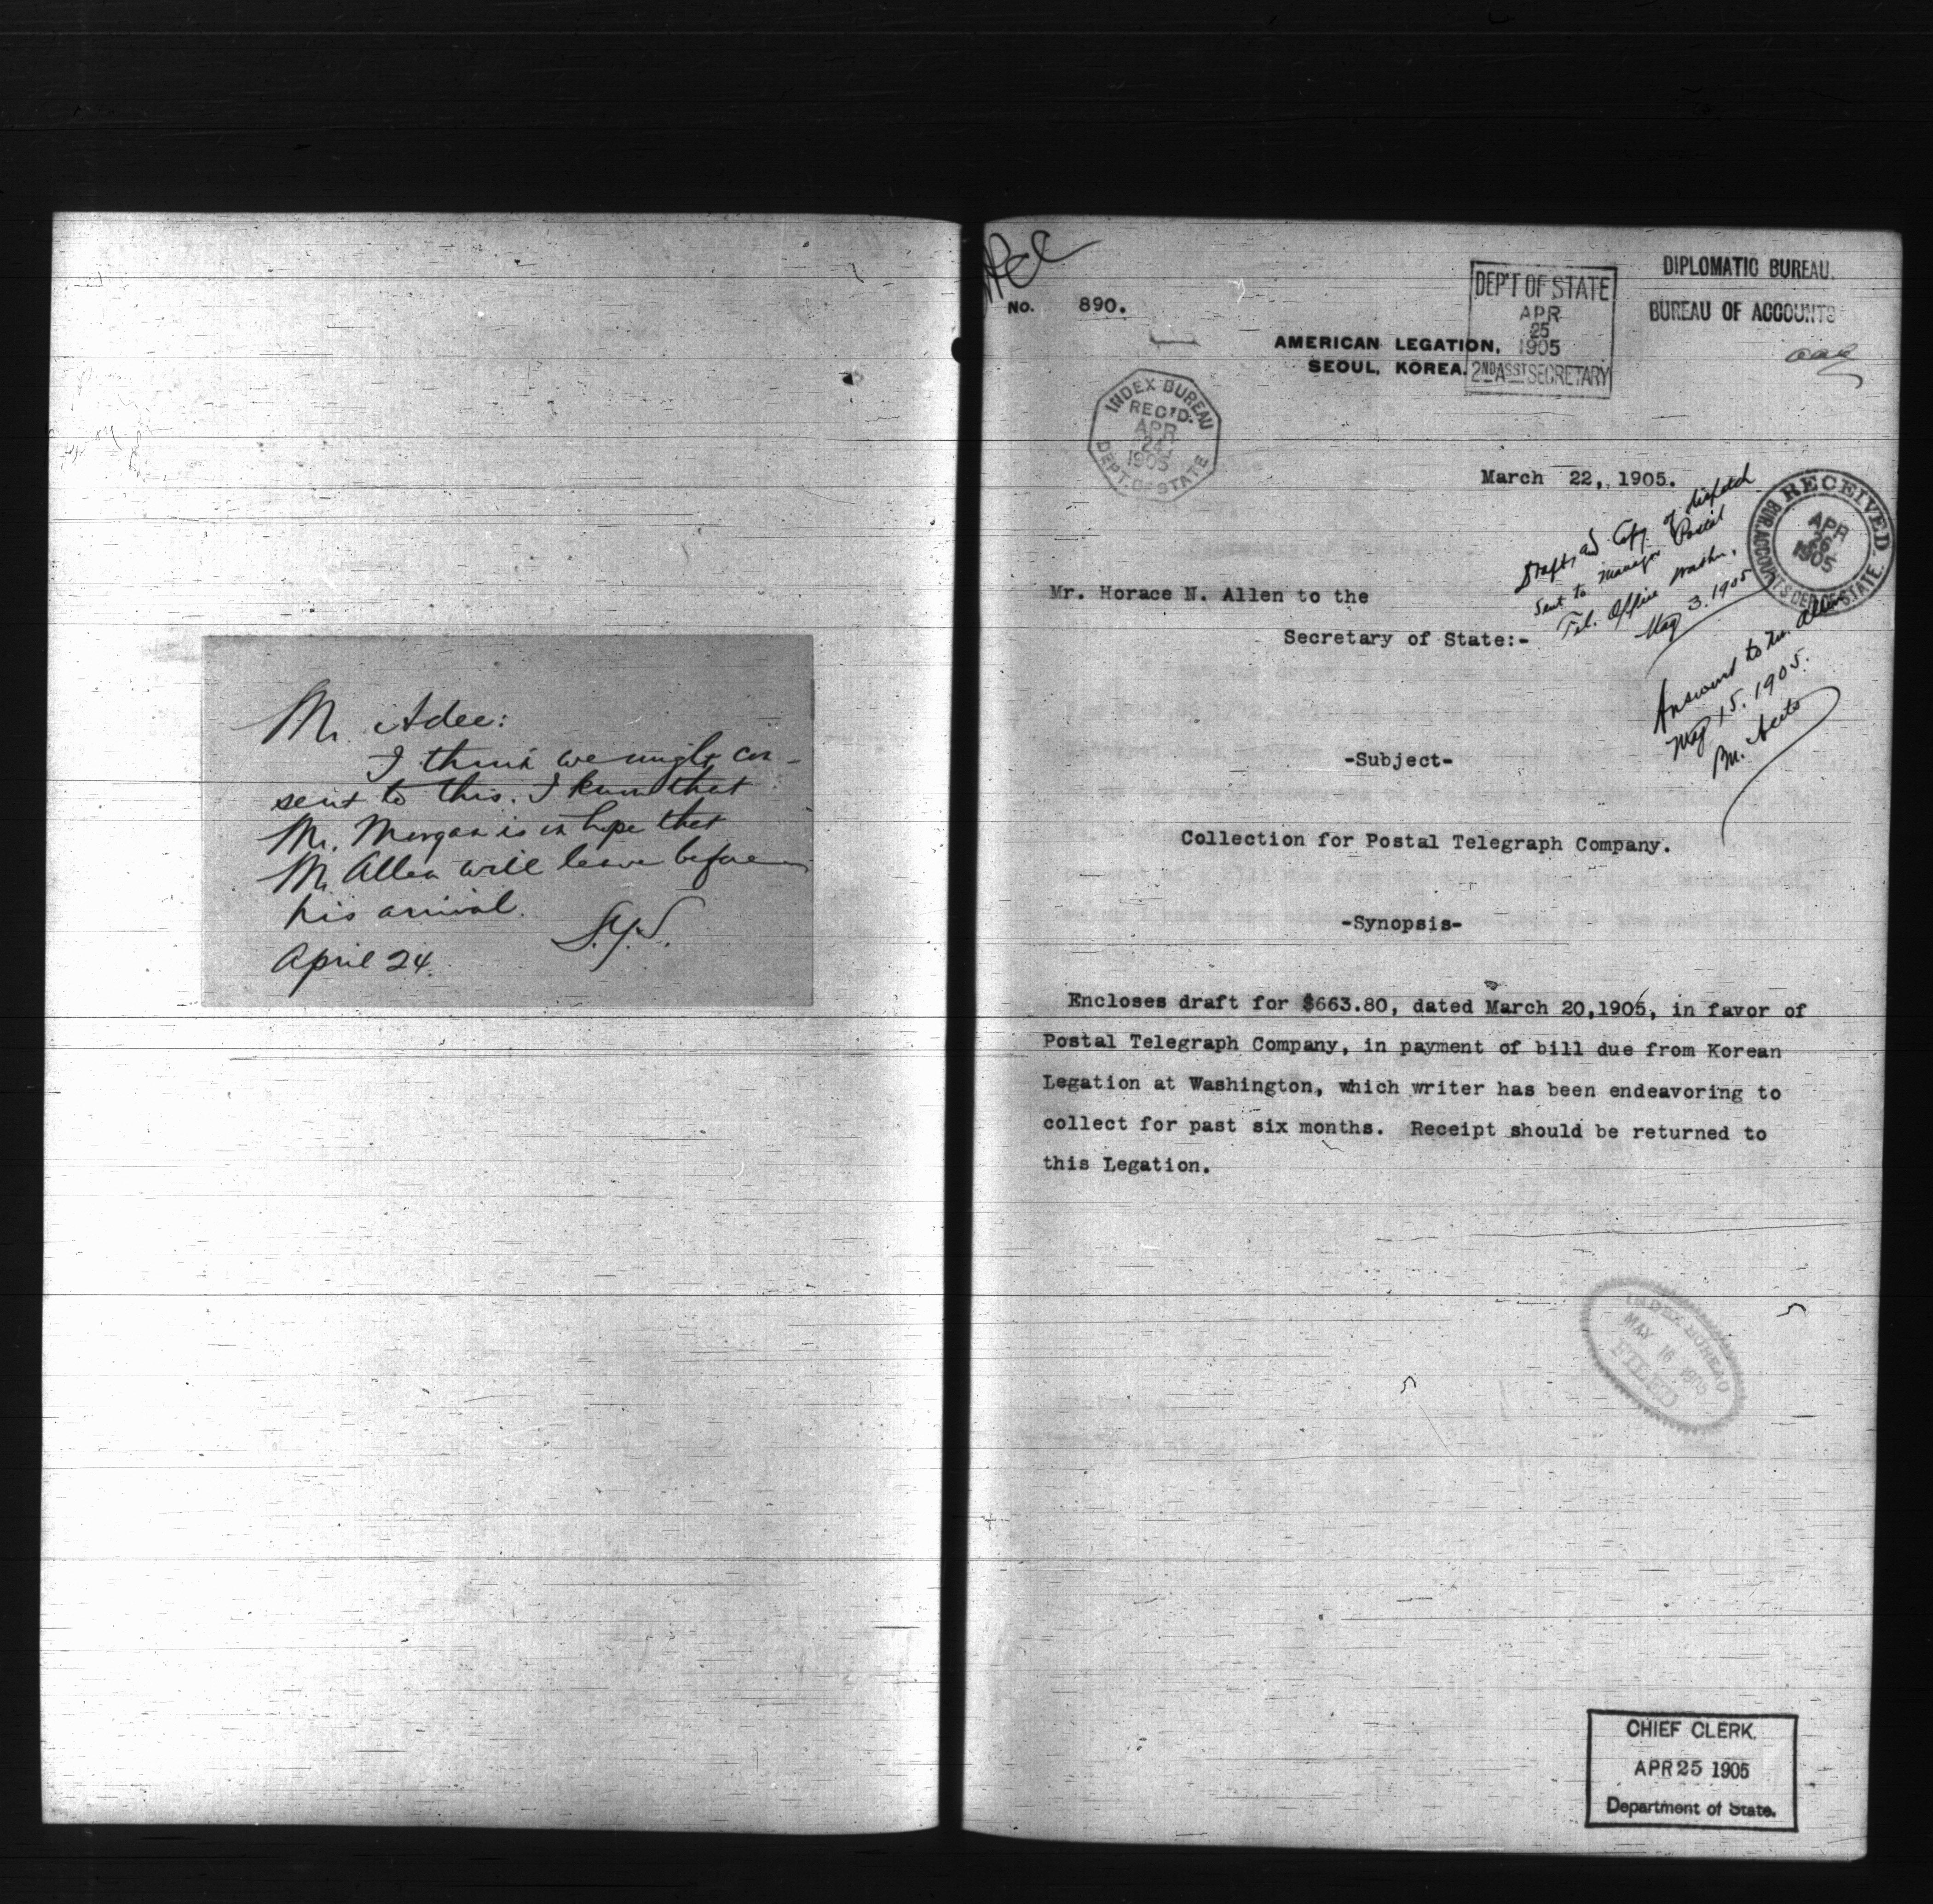 Mr. Adee:
I think we might con-
sent to this. I know that
Mr. Morgan is in hope that
Mr. Allen will leave before
his arrival.
S.Y.S.
April 24.
No. 890.
DEP'T OF STATE
APR
25
1905
2ND ASST SECRETARY
DIPLOMATIC BUREAU.
BUREAU OF ACCOUNTS
AMERICAN LEGATION,
SEOUL, KOREA.
INDEX BUREAU
REC'D.
APR
24
1905
DEPT. OF STATE
March 22, 1905.
RECEIVED
APR
26
1905
BUR. ACCOUNTS DEP. OF STATE.
Draft, and Copy of dispatch
sent to manager Postal
Tel. Office Washn,
May 3. 1905
Mr. Horace N. Allen to the
Secretary of State:-
Answered to Mr. Allen
May 15. 1905.
-Subject-
Collection for Postal Telegraph Company.
-Synopsis-
Encloses draft for $663.80, dated March 20,1905, in favor of
Postal Telegraph Company, in payment of bill due from Korean
Legation at Washington, which writer has been endeavoring to
collect for past six months. Receipt should be returned to
this Legation.
INDEX BUREAU
MAY 16 1905
FILED
CHIEF CLERK.
APR 25 1905
Department of State.